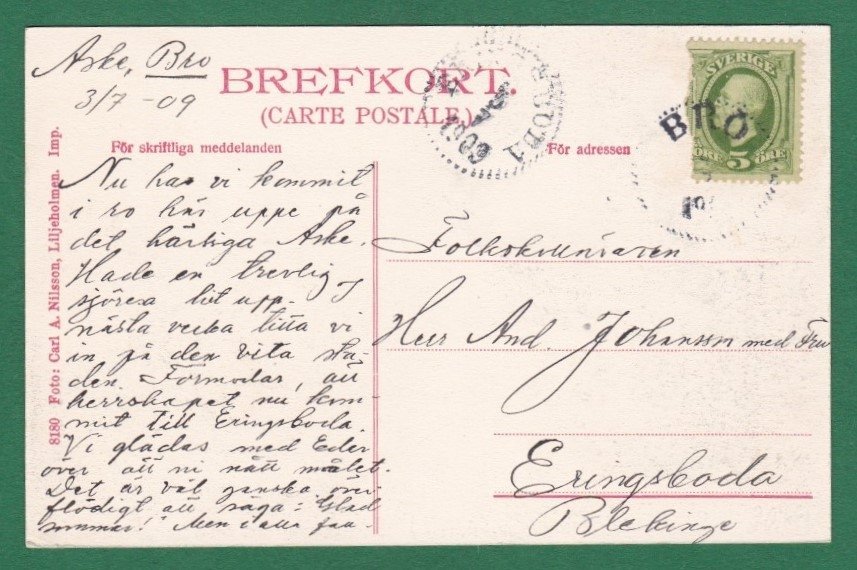 Aske, Bro
3/7 -09
BREFKORT.
(CARTE POSTALE.)
För skriftliga meddelanden
För adressen
SVERIGE
ÖRE 5 ÖRE
BRO
8180 Foto: Carl A. Nilsson, Liljeholmen. Imp.
Nu ha vi kommit
i ro här uppe på
det härliga Aske.
Hade en trevlig
sjöresa hit upp. I
nästa vecka titta vi
in på den vita sta-
den. Förmodar, att
herrskapet nu kom-
mit till Eringsboda.
Vi glädas med Eder
över att ni nått målet.
Det är väl ganska över-
flödigt att säga: Glad
sommar! Men i alla fall
Folkskolläraren
Herr And. Johansson med Fru
Eringsboda
Blekinge